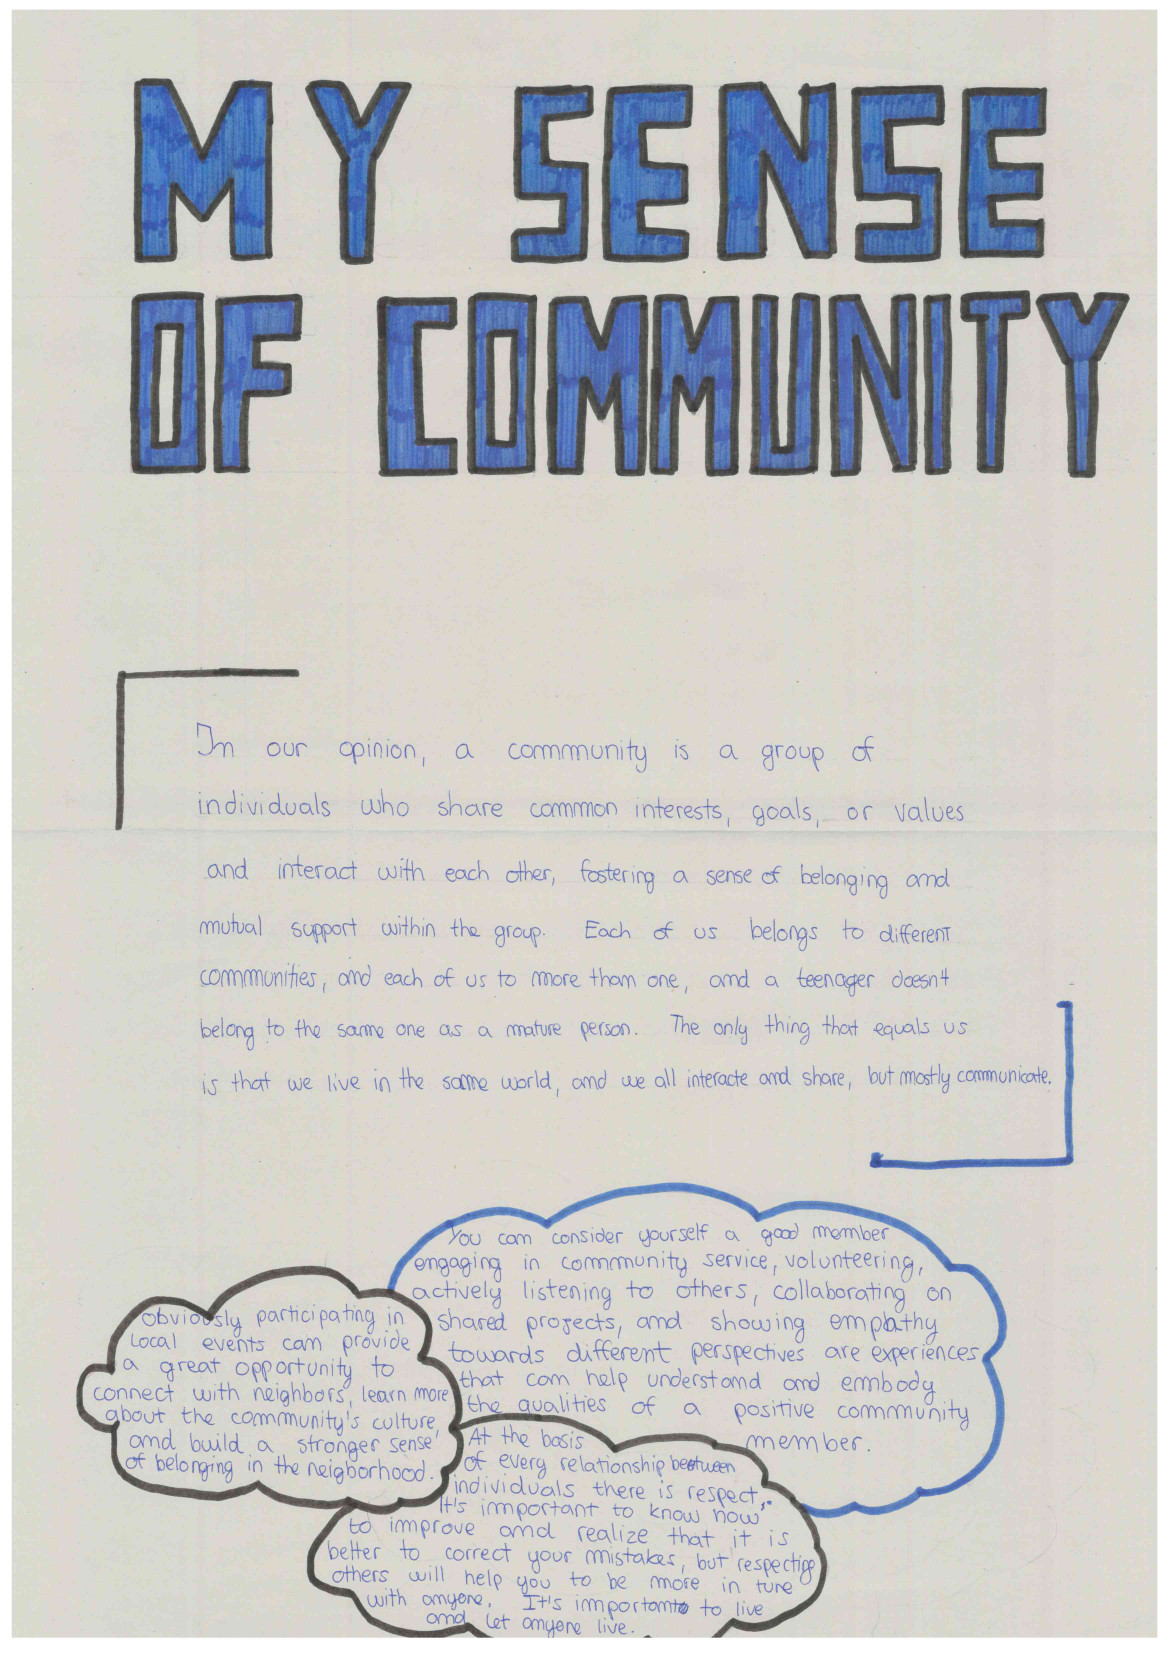 MY SENSE
OF COMMUNITY
In our opinion, a community is a group of
individuals who share common interests, goals, or values
and interact with each other, fostering a sense of belonging and
mutual support within the group. Each of us belongs to different
communities, and each of us to more than one, and a teenager doesn't
belong to the same one as a mature person. The only thing that equals us
is that we live in the same world, and we all interacte and share, but mostly communicate.
You can consider yourself a good member
engaging in community service, volunteering,
actively listening to others, collaborating on
shared projects, and showing empathy
towards different perspectives are experiences
that can help understand and embody
the qualities of a positive community
member.
obviously participating in
local events can provide
a great opportunity to
connect with neighbors, learn more
about the community's culture,
and build a stronger sense
of belonging in the neigborhood.
At the basis
of every relationship between
individuals there is respect.
It's important to know how
to improve and realize that it is
better to correct your mistakes, but respecting
others will help you to be more in tune
with anyone. It's important to live
and let anyone live.